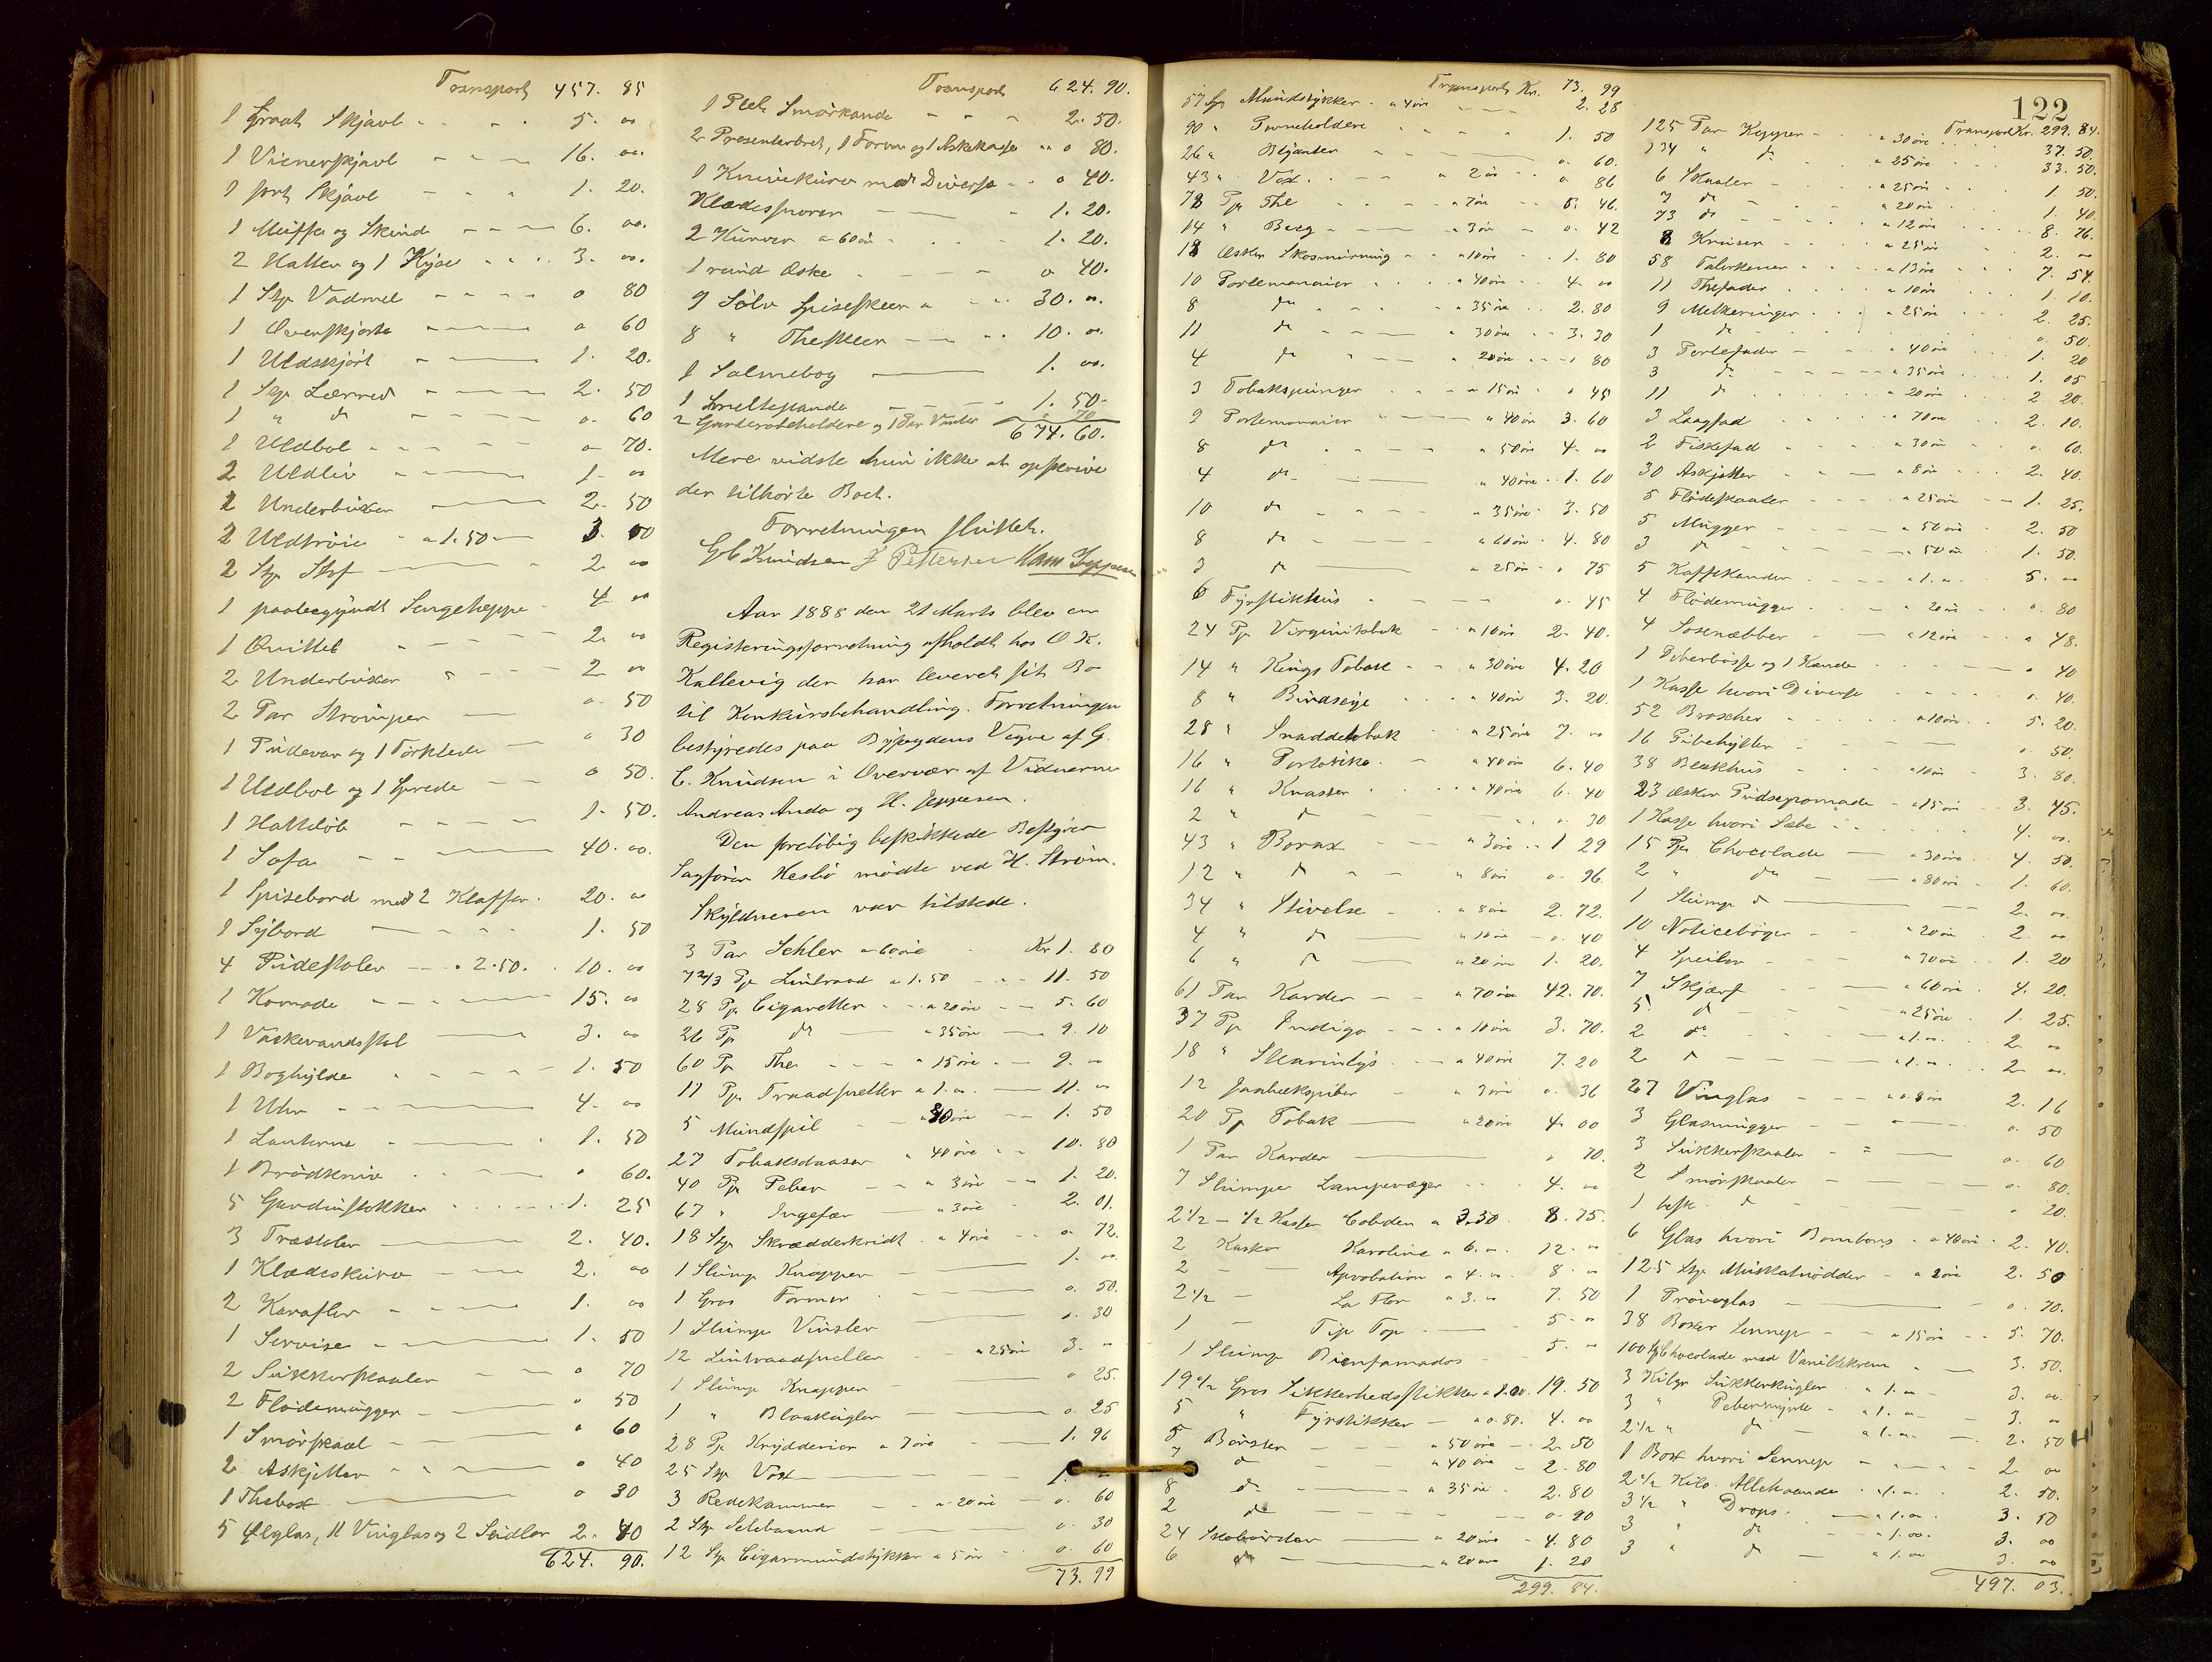 Transport 457. 85
1 Graat Skjavl 5. 00
1 Vienerskjavl 16. 00.
1 sort Skjavl 1. 20.
1 Muffe og Skind 6. 00.
2 Hatter og 1 Kjole 3. 00.
1 Stp Vadmel 0 80
1 Overskjorte 0 60
1 Uldskjört 1. 20.
1 Stp. Lærred 2. 50
1 " do 0. 60
1 Uldbol 0 70.
2 Uldliv 1. 00
2 Underbuxer 2. 50
2 Uldtröie a 1.50 3. 00
2 Stp Stof 2. 00
1 paabegyndt Sengeteppe 4 00
1 Qviltet 2. 00
2 Underbuxer 2 00
2 Par Strömper 0. 50
1 Pudevar og 1 Törklede 0 30
1 Uldbol og 1 Sprede 0 50.
1 Hatteløb 1. 50.
1 Sofa 40. 00.
1 Spisebord med 2 Klaffer. 20. 00
1 Sybord 1. 50
4 Pudestoler a 2.50. 10. 00
1 Komode 15. 00
1 Vaskevandsstol 3. 00
1 Boghylde 1. 50
1 Uhr 4. 00
1 Lanterne 1. 50
1 Brödkniv 0 60.
5 Gardinstokker 1. 25
3 Træstoler 2. 40.
1 Klædeskurv 2. 00
2 Karafler 1. 00
1 Servise 1. 50
2 Sukkerskaaler 0 70
2 Flödemugger 0 50
1 Smörskaal 0 60
2 Askjetter 0 40
1 Thebox 0 30
5 Ølglas, 11 Vinglas og 2 Seidler 2. 40
624. 90.
Transport 624. 90.
1 Plet Smörkande 2. 50.
2 Presenterbret, 1 Form og 1 Askekasse 0 80.
1 Knivekurv med Diverse 0 40.
Klædessnorer 1. 20.
2 Kurver a 60 öre 1. 20.
1 rund Æske 0 40.
9 Sölv Spiseskeer 30. 00.
8 " Theskeer 10. 00
1 Salmebog 1. 00.
1 Smeltepande 1. 50.
2 Garderobeholdere og 1 Par Vanter 0 70
674. 60.
Mere vidste hun ikke at opskrive
der tilhørte Boet.
Forretningen sluttet.
G C Knudsen J Pettersen Hans Jeppesen
Aar 1888 den 21 Marts blev en
Registeringsforretning afholdt hos O. K.
Kallevig der har leveret sit Bo
til Konkursbehandling. Forretningen
bestyredes paa Byfogdens Vegne af G.
C. Knudsen i Overvær af Vidnerne
Andreas Anda og H. Jeppesen.
Den foreløbig beskikkede Bestyrer
Sagförer Hesbö mödte ved H. Ström.
Skyldneren var tilstede.
3 Par Sehler a 60 öre Kr 1. 80
7 2/3 Pk Lintraad a 1.50 11. 50
28 Pk Cigaretter a 20 öre 5. 60
26 Pk do a 35 öre 9. 10
60 Pk The a 15 öre 9. 00
11 Pk Traadsneller a 1.00. 11. 00
5 Mundspil a 30 öre 1. 50
27 Tobaksdaaser a 40 öre 10. 80
40 Pk Peber a 3 öre 1. 20.
67 " Ingefær a 3 öre 2. 01.
18 Stp Skrædderkridt a 4 öre 0. 72.
1 Slump Knapper 1. 00.
1 Gros Former 0. 50.
1 Slump Vinsler 0. 30
12 Lintraadsneller a 25 öre 3. 00
1 Slump Knapper 0 25.
1 " Blaakugler 0. 25
28 Pk Krydderier a 7 öre 1. 96
25 Stp Vox 1. 00
3 Redekammer a 20 öre 0. 60
2 Stp Selebaand 0. 30
12 Stp Cigarmundstykker a 5 öre 0. 60
73. 99
Transport Kr. 73. 99
57 Stp Mundstykker a 4 öre 2. 28
90 " Penneholdere 1. 50
26 " Blyanter 0. 60.
43 " Vox. a 2 öre 0. 86
78 Pk The a 7 öre 5. 46.
14 " Becg a 3 öre 0. 42
18 Æsker Skosmurning a 10 öre 1. 80
10 Portemonaier a 40 öre 4. 00
8 do a 35 öre 2. 80
11 do a 30 öre 3. 30
4 do a 20 öre 80
3 Tobakspunger a 15 öre 0 45
9 Portemonaier a 40 öre 3. 60
8 do a 50 öre 4. 00
4 do a 40 öre 1. 60
10 do a 35 öre 3. 50
8 do a 60 öre 4. 80
3 do a 25 öre 0 75
6 Fyrstikhus 0. 45
24 Pk Virginitobak a 10 öre 2. 40.
14 " Kings Tobak a 30 öre 4. 20
8 " Birdseye a 40 öre 3. 20.
28 " Snaddetobak a 25 öre 7. 00
16 " Portoriko a 40 öre 6. 40
16 " Knaster a 40 öre 6. 40
2 " do 0. 30.
43 " Borax a 3 öre 1 29
12 " do a 8 öre 0. 96.
34 " Stivelse a 8 öre 2. 72.
4 " do a 10 öre 0. 40
6 " do a 20 öre 1. 20.
61 Par Karder a 70 öre 42. 70.
37 Pk Indigo a 10 öre 3. 70.
18 " Stearinlys a 40 öre 7. 20
12 Jaabekspiber a 3 öre 0. 36
20 Pk Tobak a 20 öre 4. 00
1 Par Karder 0 70.
7 Slumper Lampevæger 4. 00
2 1/2 - 1/2 Kasser Cobden a 3.50 8. 75.
2 Kasser Karoline a 6. 00 12. 00
2 Aprobation a 4. 00 8. 00
2 1/2 La Flor a 3. 00 7. 50
1 Tip Top 5. 00
1 Slump Bienfamados 5. 00
19 1/2 Gros Sikkerhedsstikker a 1.00. 19. 50
5 " Fyrstikker a 0.80. 4. 00
5 Börster a 50 öre 2. 50
7 do a 40 öre 2. 80
8 do a 35 öre 2. 80
2 do 0. 90
24 Skobörster a 20 öre 4. 80
6 do a 20 öre 1. 20
299. 84.
122
Transport Kr. 299. 84.
125 Par Kopper a 30 öre 37. 50.
134 " do a 25 öre 33. 50.
6 Skaaler a 25 öre 1. 50.
7 do a 20 öre 1. 40.
73 do a 12 öre 8. 76.
8 Kruser a 25 öre 2. 00
58 Talerkener a 13 öre 7. 54.
11 Thefader a 10 öre 1. 10.
9 Melkeringer a 25 öre 2. 25.
1 do 0. 50.
3 Tortefader a 40 öre 1. 20
3 do a 35 öre 1. 05
11 do a 20 öre 2. 20.
3 Laagfad a 70 öre 2. 10.
2 Fiskefad a 30 öre 0. 60.
30 Askjetter a 8 öre 2. 40.
5 Flödeskaaler a 25 öre 1. 25.
5 Mugger a 50 öre 2. 50
3 do a 50 öre 1. 50.
5 Kaffekander a 1. 00 5. 00
4 Flödemugger a 20 öre 0. 80
4 Sosenæbber a 12 öre 0 48.
1 Peberbösse og 1 Kande 0 40
1 Kasse hvori Diverse 0. 40.
52 Broscher a 10 öre 5. 20.
16 Pibehylter 0. 50.
38 Blækhus a 10 öre 3. 80.
23 Æsker Pudsepomade a 15 öre 3. 45.
1 Kasse hvori Sæbe 4. 00.
15 Pk Chocolade a 30 öre 4. 50.
2 " do a 80 öre 1. 60.
1 Slump do 2. 00.
10 Noticebøger a 20 öre 2. 00
4 Speiler a 30 öre 1. 20
7 Skjærf a 60 öre 4. 20.
5 do a 25 öre 1. 25.
2 do a 1.00. 2. 00
2 do a 1.00. 2. 00.
27 Vinglas a 0.8 öre 2. 16
3 Glasmugger 0. 50
3 Sukkerskaaler 0. 60
2 Smörskaaler 0. 80.
1 besk. do 0 20.
6 Glas hvori Bonbons a 40 öre 2. 40.
125 Stp Muskatnödder a 2 öre 2. 50
1 Pröveglas 0. 70.
38 Boxer Sennep a 15 öre 5. 70.
100 Chocolade med Vanillekrem 3. 50.
3 Kilgr Sukkerkugler a 1. 00 3. 00.
3 " Pebermynte a 1. 00 3. 00
2 1/2 " do a 1. 00 2. 50
1 Box hvori Sennep 2. 00
2 1/2 Kilo Allehaande a 1. 00. 2. 50.
3 1/2 " Drops. a 1.00. 3. 50
3 " do a 1.00. 3. 00
3 " do a 1.00 3. 00
497. 03.